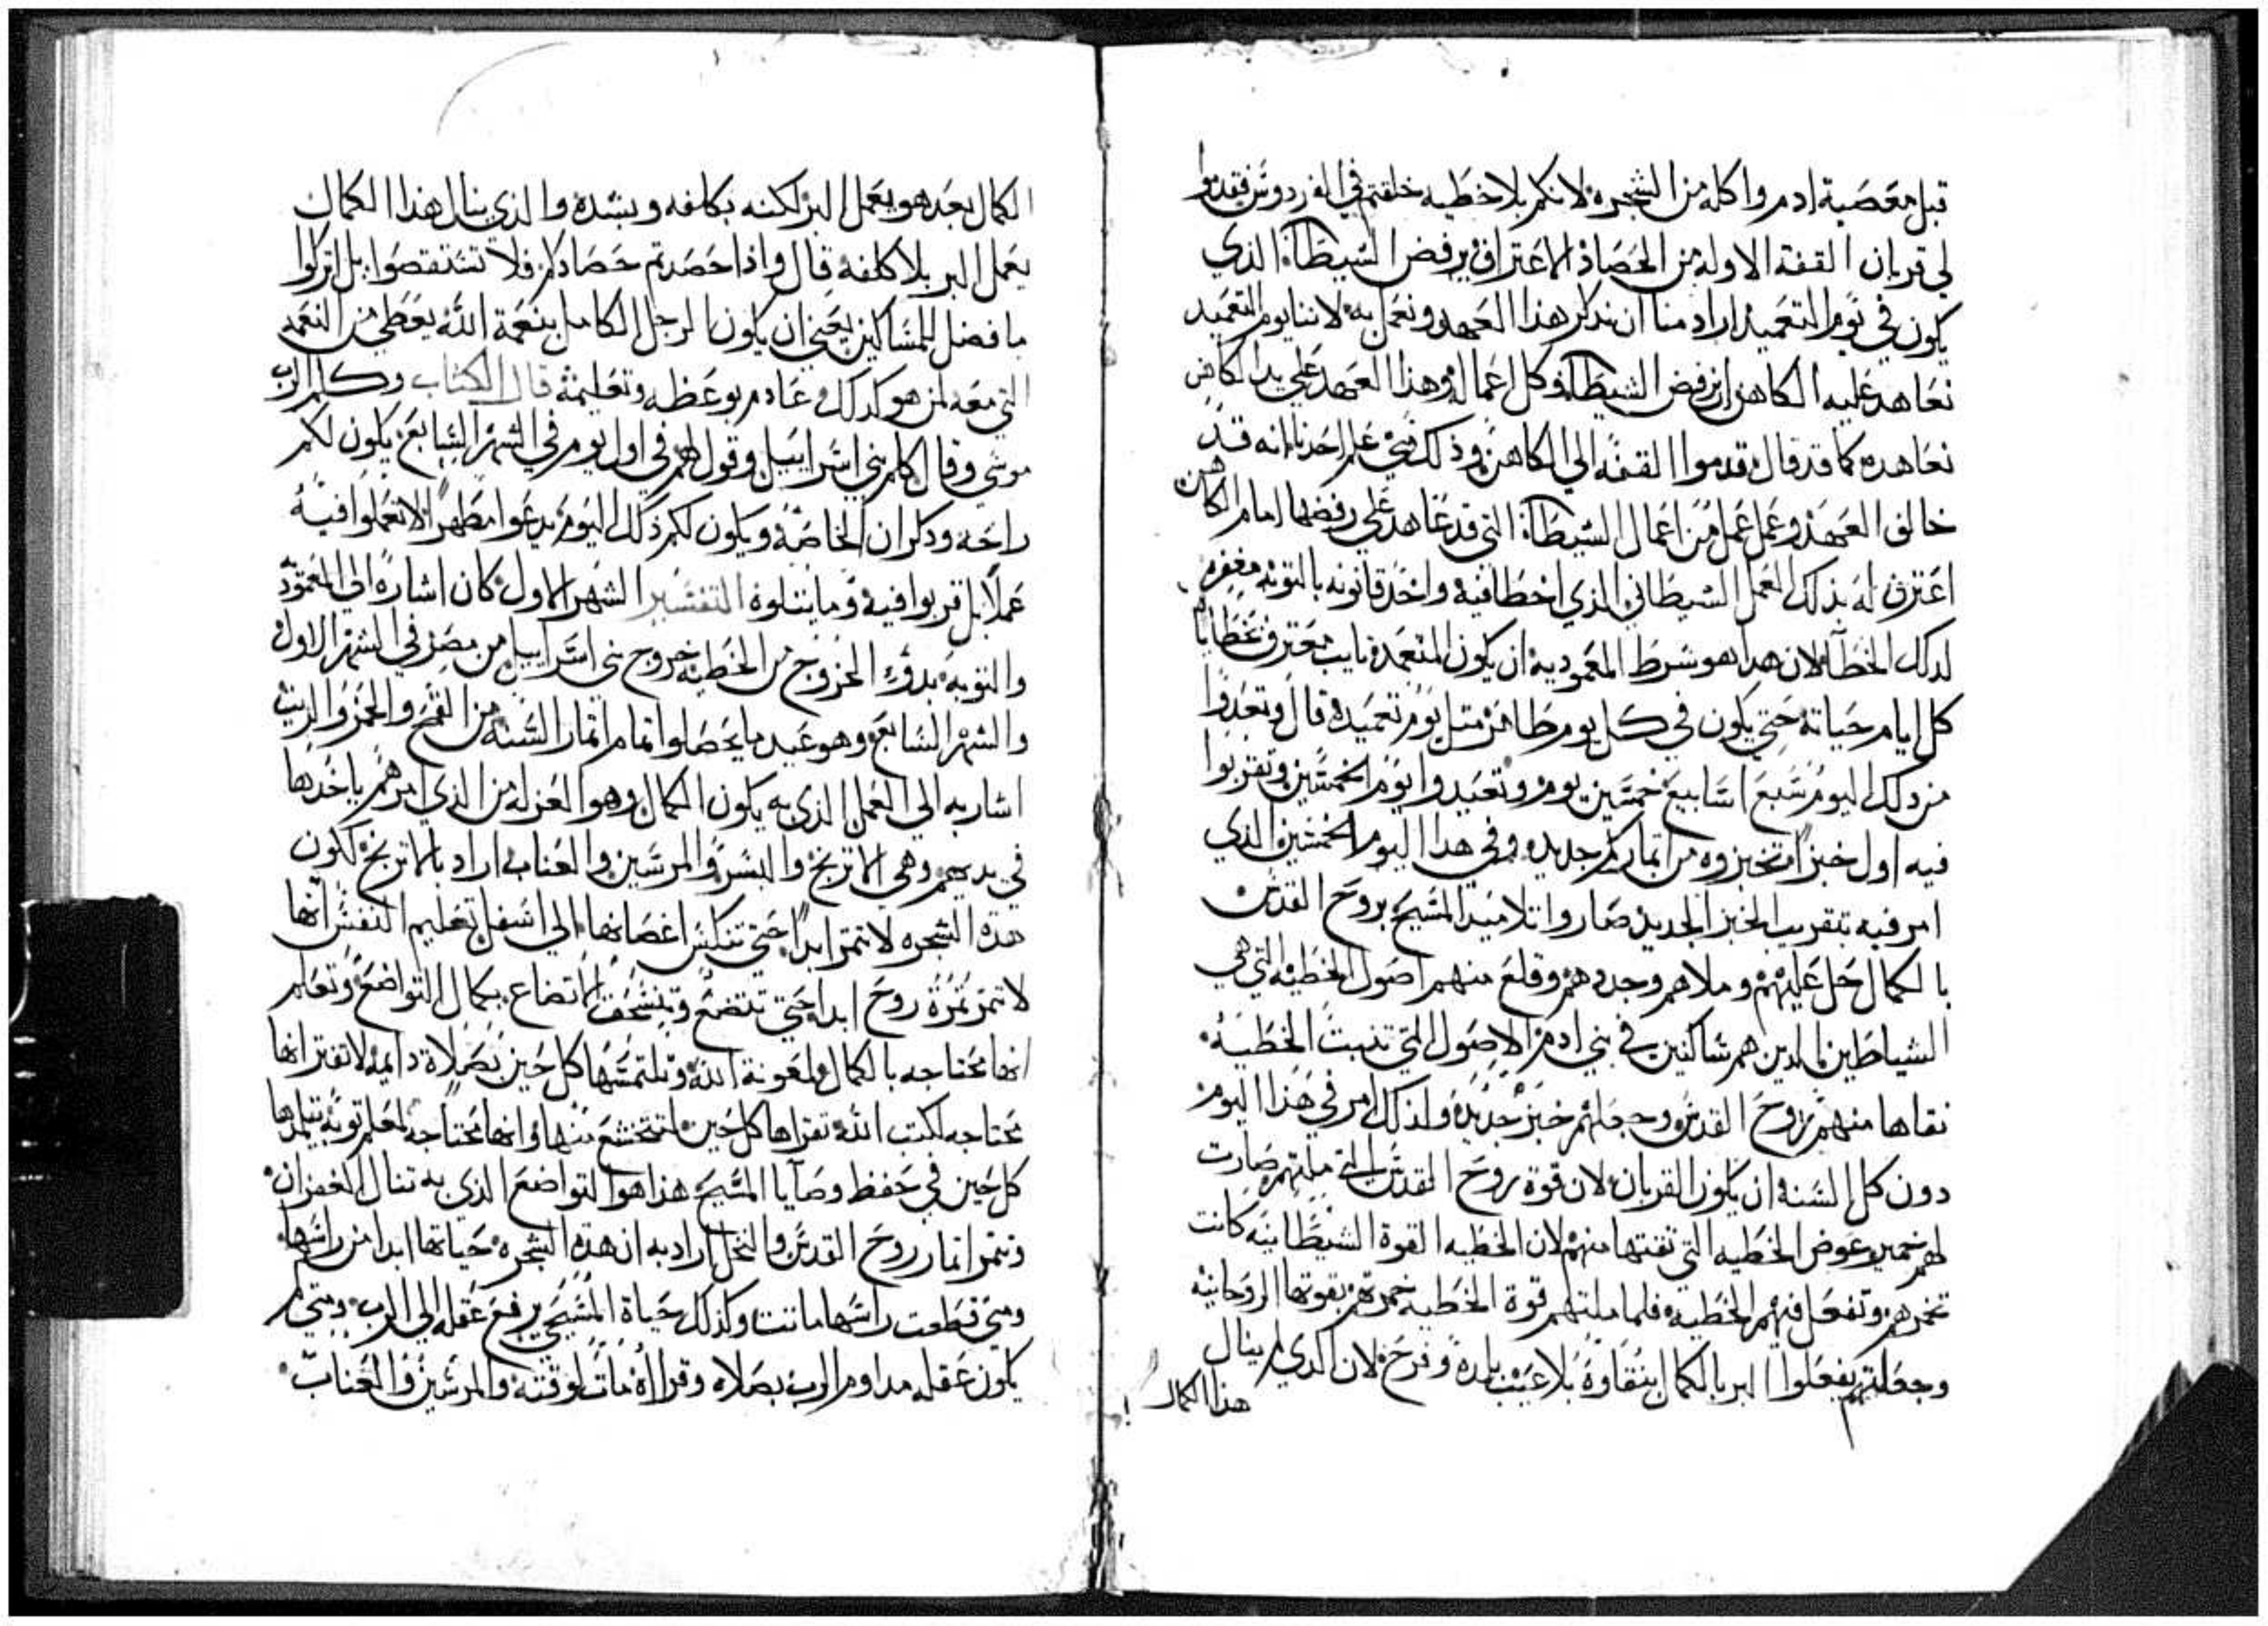 قبل معصية ادم واكله من الشجره لانكم بلا خطيه خلقتم في الفردوس فقدموا
لي قربان القفة الاوله من الحصاد الاعتراف برفض الشيطان الذي
يكون في يوم التعميد اراد منا ان نذكر هذا العهد ونعمل به لاننا يوم التعميد
نعاهد عليه الكاهن ان نرفض الشيطان وكل اعماله وهذا العهد علي يد الكاهن
نعاهده كما قد قال قدموا القفه الي الكاهن وذلك متي علم احدنا انه قد
خالف العهد وعمل عمل من اعمال الشيطان التي قد عاهد علي رفضها امام الكاهن
اعترف له بذلك العمل الشيطاني الذي اخطا فيه واخذ قانونه بالتوبه مغفره
لدلك الخطا لان هدا هو شرط المعموديه ان يكون المتعمد تايب معترف بخطاياه
كل ايام حياته حتي يكون في كل يوم طاهر مثل يوم تعميده قال وتعدوا
من دلك اليوم سبع اسابيع خمسين يوم وتعيدوا يوم الخمسين وتقربوا
فيه اول خبز تخبزوه من اتماركم جديد وفي هدا اليوم الخمسين الذي
امر فيه بتقريب الخبز الجديد صاروا تلاميد المسيح بروح القدس
بالكمال حل عليهم وملاهم وجددهم وقلع منهم اصول الخطيه التي هي
الشياطين الدين هم ساكنين في بني ادم الاصول التي تنبت الخطيه
نقاها منهم روح القدس وجعلهم خبز جديد ولذلك امر في هذا اليوم
دون كل السنه ان يكون القربان لان قوة روح القدس التي ملتهم صارت
لهم خمير عوض الخطيه التي نقتها منهم لان الخطيه القوة الشيطانيه كانت
تخمرهم وتفعل فيهم الخطيه فلما ملتهم قوة الخطيه خمرتهم بقوتها الروحانيه
وجعلتهم يفعلوا البر بالكمال بنقاوة بلا عيب بلدة وفرح لان الذي لم ينال
هذا الكمال
الكمال بعد هو يعمل البر لكنه بكلفه وبشده والذي ينال هذا الكمال
يعمل البر بلا كلفه قال واذا حصدتم حصادكم فلا تستقصوا بل اتركوا
ما فضل للمساكين يعني ان يكون الرجل الكامل بنعمة الله يعطي من النعمه
التي معه لمن هو كدلك عادم بوعظه وتعليمه قال الكتاب وكلم الرب
موسي وقال كلم بني اسراييل وقول لهم في اول يوم في الشهر السابع يكون لكم
راحه ودكران الخاصه ويكون لكم ذلك اليوم يدعوا مطهرا لا تعملوا فيه
عملا بل قربوا فيه وما يتلوة التفسير الشهر الاول كان اشارة الي المعمود
والتوبه بدو الخروج من الخطيه خروج بني اسراييل من مصر في الشهر الاول
والشهر السابع وهو عيد ما يحصلوا اتمام اتمار السنه من القمح والخمر والزيت
اشار به الي العمل الذي به يكون الكمال وهو العزله من الذي امرهم ياخدها
في يديهم وهي الاترنج والبسر والمرسين والعناب اراد بالاترنج لكون
هده الشجره لا تتمر ابدا حتي تنكس اغصانها الي اسفل تعليم النفس انها
لا تتمر تمرة روح ابدا حتي تتضع وتنسحق الاتضاع بكمال التواضع وتعلم
انها محتاجه بالكمال لمعونة الله وتلتمسها كل حين بصلاة دايمه لا تفتر انها
محتاجه لكتب الله تقراها كل حين لتتخشع منها وانها محتاجه لمعلم توبه يتلمدها
كل حين في حفظ وصايا المسيح هذا هو التواضع الذي به تنال الغفران
وتتمر اتمار روح القدس والنخل اراد به ان هده الشجره حياتها ابدا من راسها
ومتي قطعت راسها ماتت وكذلك حياة المسيحي يرفع عقله الي الرب ومتي لم
يكون عقله مداوم الرب بصلاه وقراة مات لوقته والمرسين والعناب